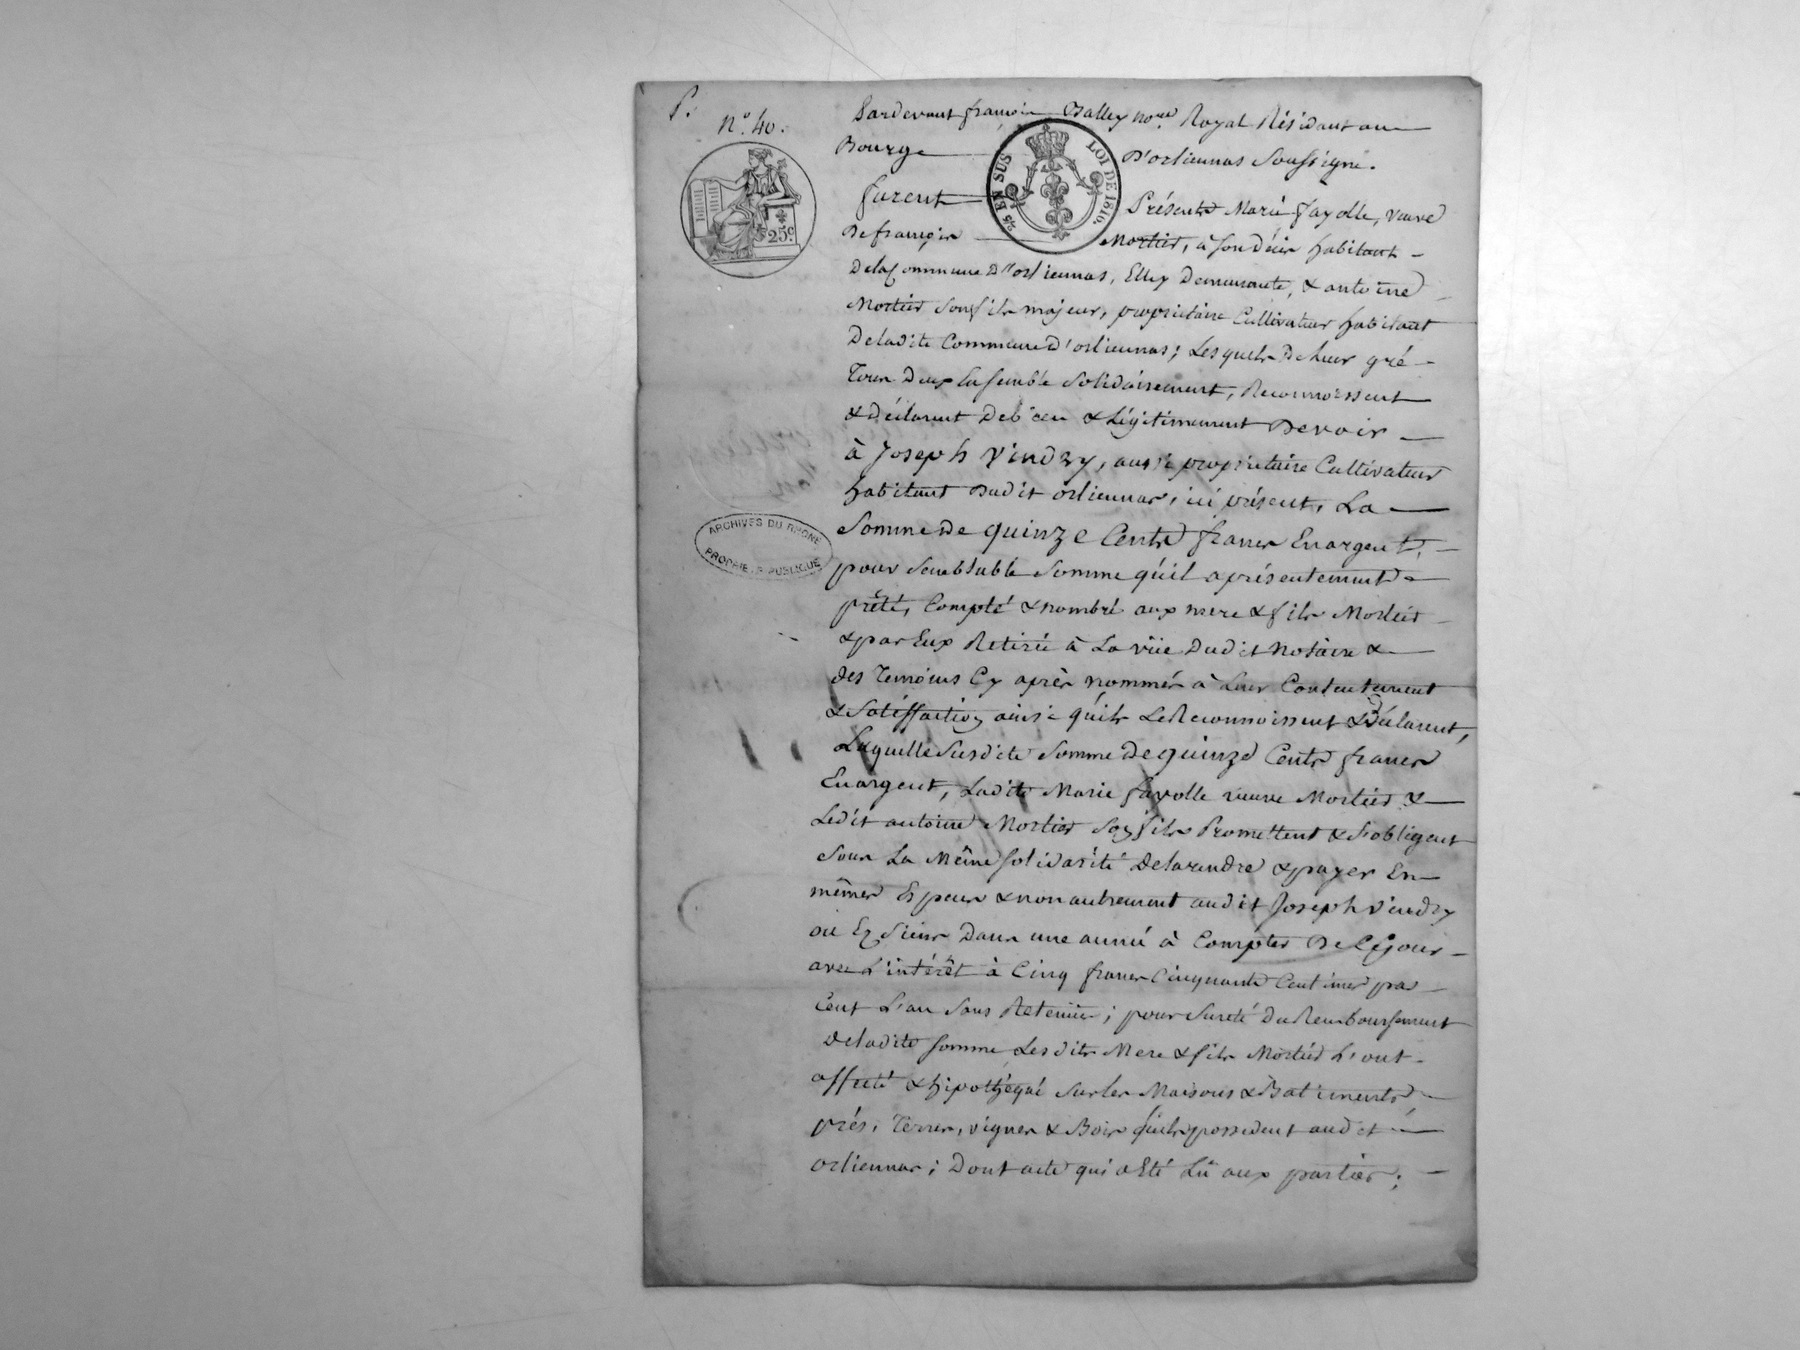 P.
N.º 40.
25c
2/5 EN SUS LOI DE 1816.
Pardevant françois Balley no.re Royal Résidant au
Bourg D'orliennas Soussigné.
furent Présents Marie fayolle, veuve
De françois Mortier, à son décès habitant
De la Commune D'orliennas, Elle y Demeurante, & antoine
Mortier Son fils majeur, propriétaire Cultivateur habitant
De ladite Commune D'orliennas; Lesquels De leur gré
Tous Deux Ensemble Solidairement, Reconnoissent
& Déclarent De bien & Légitimement Devoir
à Joseph Vindry, aussi propriétaire Cultivateur
habitant Dudit orliennas, ici présent, La
Somme De quinze Cents francs En argent,
pour Semblable Somme qu'il a présentement
prêté, Compté & nombré aux mere & fils Mortier
& par Eux Retirée à La vüe Dudit Notaire &
des Temoins Cy après nommés à Leur Contentement
& Satisfaction ainsi qu'ils Le Reconnoissent & Déclarent,
Laquelle Susdite Somme De quinze Cents francs
En argent, Ladite Marie fayolle veuve Mortier &
Ledit antoine Mortier Son fils Promettent & S'obligent
Sous La Même Solidarité De la rendre & payer En
mêmes Espèces & non autrement audit Joseph Vindry
ou Es Siens Dans une année à Compter De Ce Jour
avec L'intérêt à Cinq francs Cinquante Centimes par
Cent L'an Sans Retenüe; pour Sureté Du Remboursement
De ladite Somme Lesdits Mere & fils Mortier L'ont
affecté & hipothéqué Sur les Maisons & Batiments
prés, Terres, vignes & Bois qu'ils possedent audit
orliennas; Dont acte qui a Eté Lû aux parties;
ARCHIVES DU RHONE
PROPRIETE PUBLIQUE